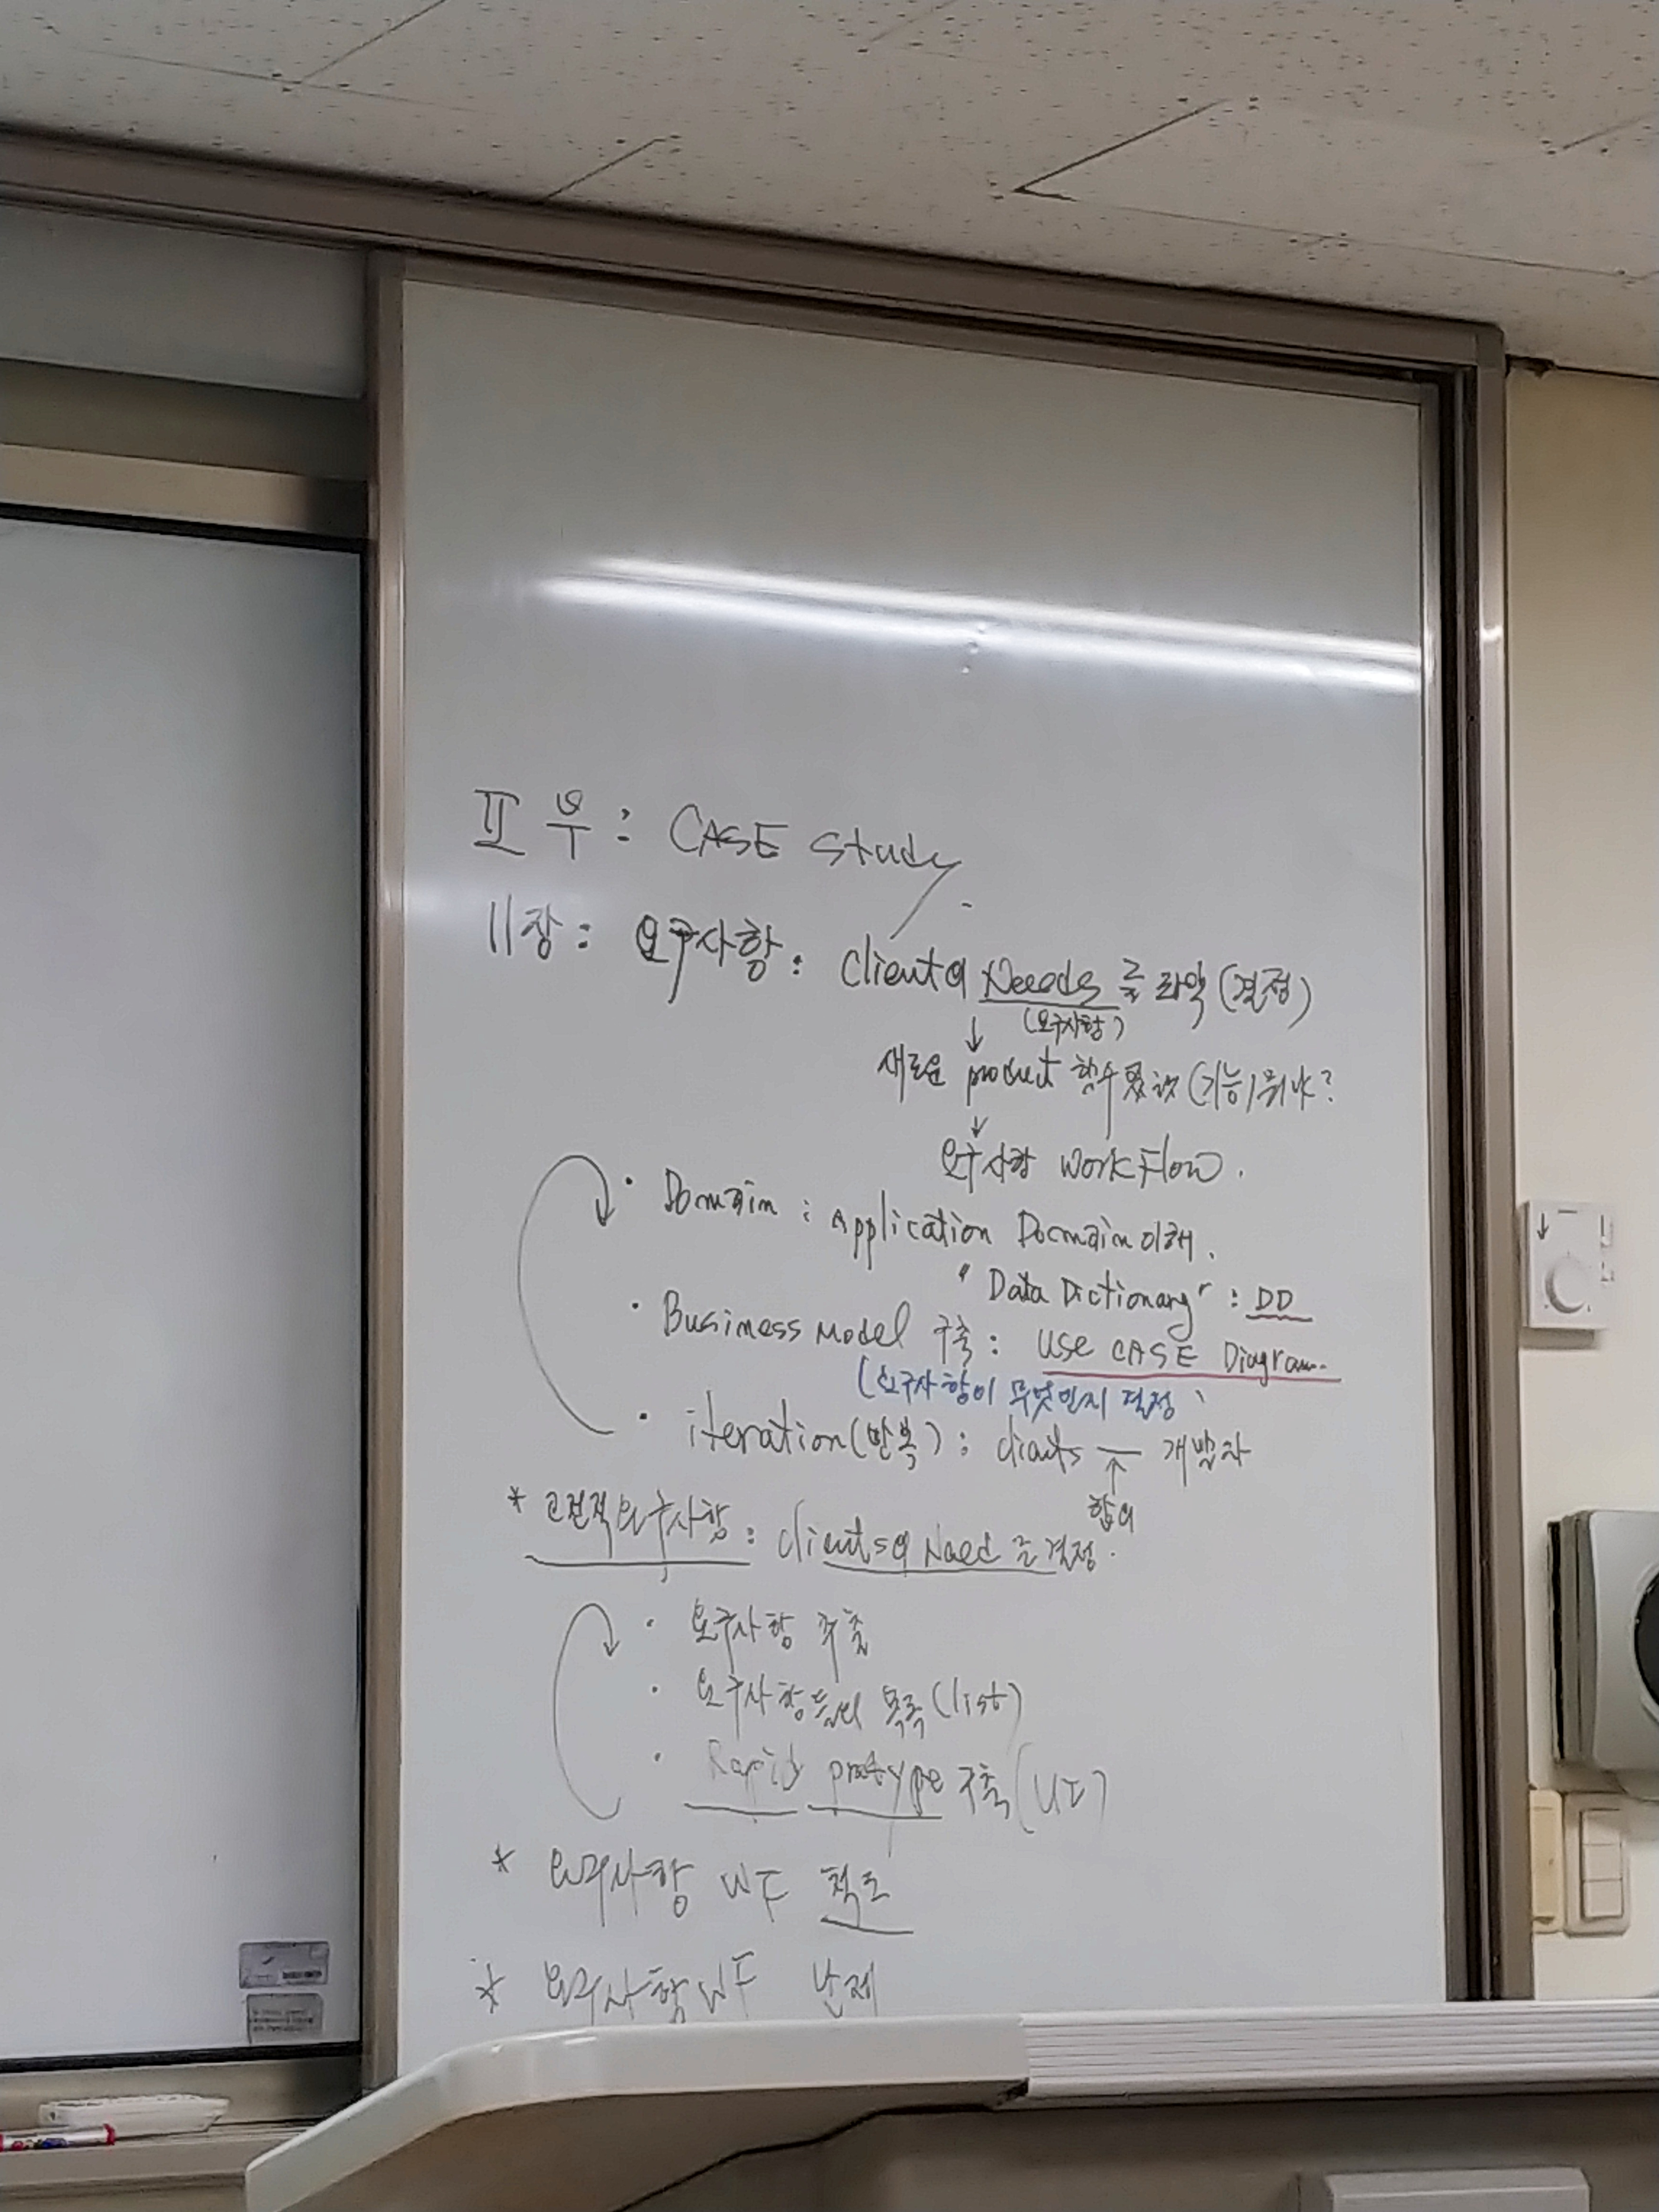 II 부 : CASE Study.
11장 : 요구사항 : Client의 Needs 를 파악 (결정)
(요구사항)
↓
새로운 product 할수 (기능) 뭐냐?
↓
요구사항 WorkFlow.
· Domain : Application Domain 이해.
"Data Dictionary" : DD
· Business Model 구축 : Use CASE Diagram.
(요구사항이 무엇인지 결정
· iteration (반복) : clients — 개발자
↑
합의
* 고전적 요구사항 : clients의 Need 를 결정.
· 요구사항 추출
· 요구사항들의 목록 (list)
· Rapid prototype 구축 (UI)
* 요구사항 WF 척도
* 요구사항 WF 난제